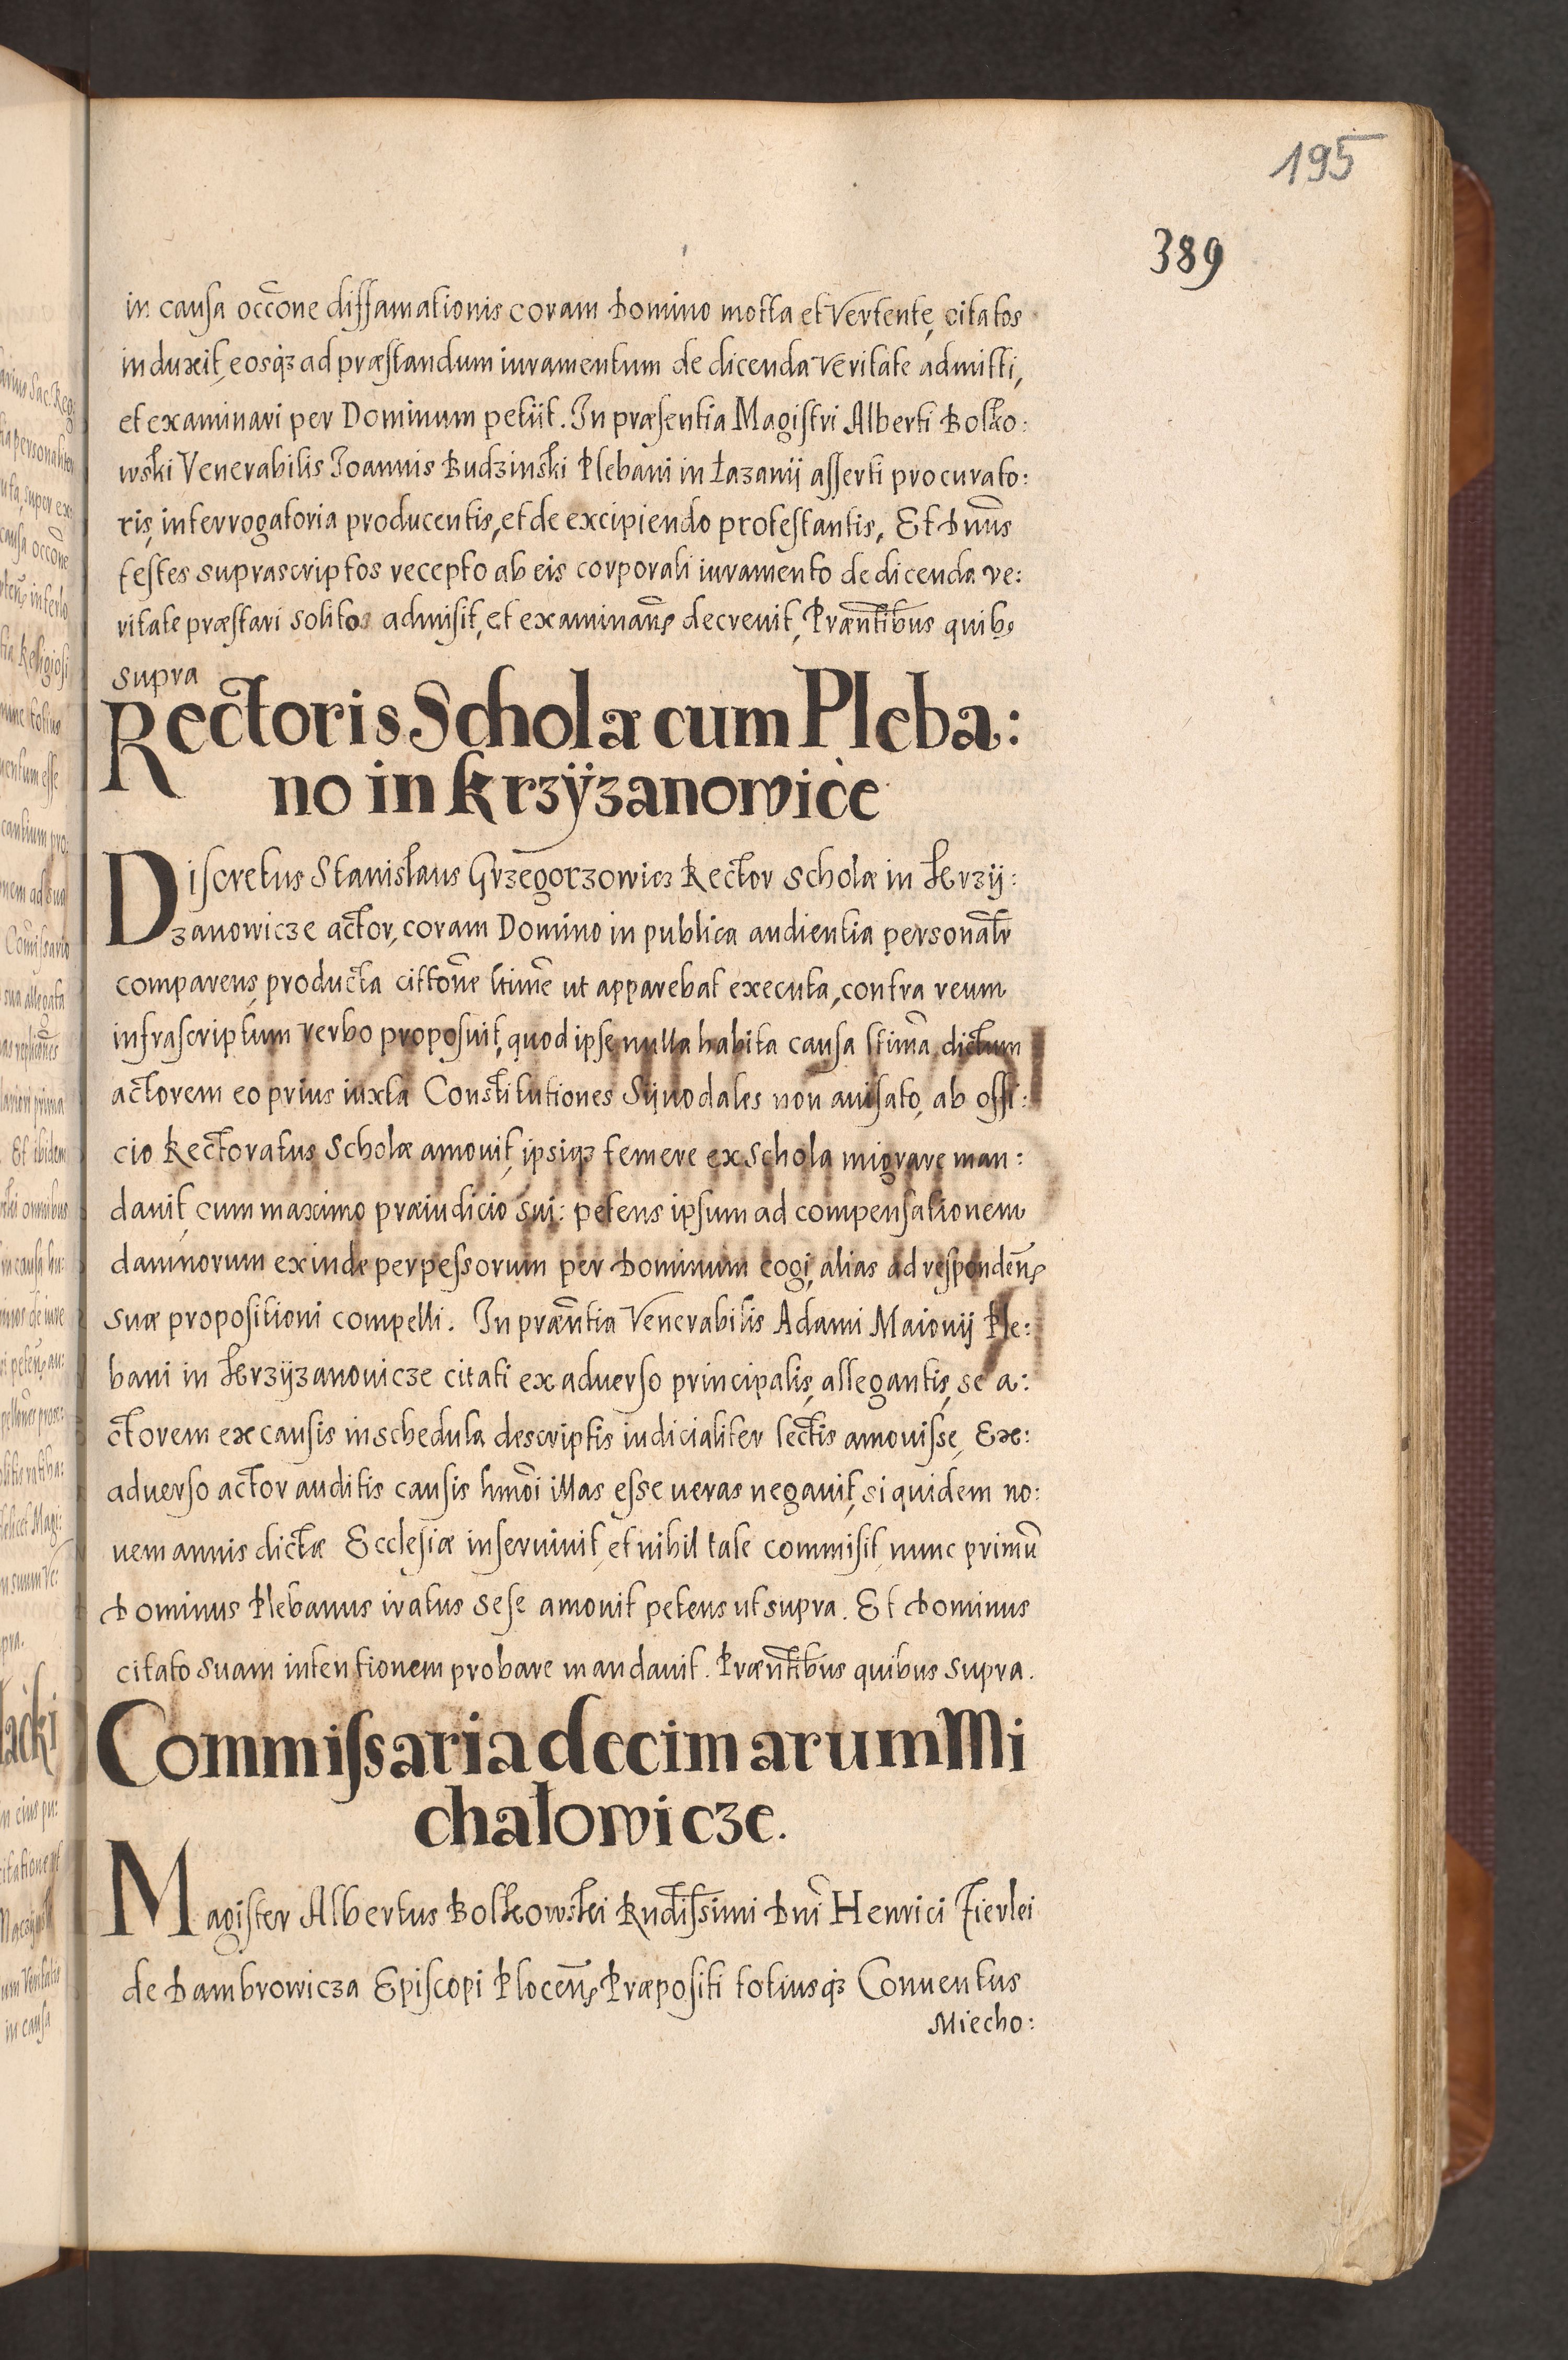 195
389
in causa occōne diffamationis coram Domino motta et Vertente, citatos
induxit, eosqʒ ad præstandum iuramentum de dicenda veritate admitti,
et examinari per Dominum petiit. In præsentia Magistri Alberti Bolko:
wski Venerabilis Joannis Budzinski Plebani in Łazanij asserti procurato:
ris, interrogatoria producentis, et de excipiendo protestantis, Et Dnūs
testes suprascriptos recepto ab eis corporali iuramento de dicenda ve:
ritate præstari solito admisit, et examinan̄ꝭ decrevit, Præn̄tibus quibꝰ
supra
Rectoris Scholæ cum Pleba:
no in Krzÿzanowicè
Discretus Stanisłaus Grzegorzowicz Rector Scholæ in Krzij:
zanowicze actor, coram Domino in publica audientia personalr̄
comparens, producta cittōne ltimē ut apparebat executa, contra reum
infrascriptum verbo proposuit, quod ipse nulla habita causa ltimā dictum
actorem eo prius iuxta Constitutiones Sijnodales non auisato, ab offi:
cio Rectoratus Scholæ amouit, ipsiqʒ temere ex Schola migrare man:
dauit, cum maximo præiudicio sui: petens ipsum ad compensationem
damnorum exinde perpessorum per Dominum cogi, alias ad responden̄ꝭ
suæ propositioni compelli. In præn̄tia Venerabilis Adami Maionij Ple:
bani in Krzÿzanouicze citati ex aduerso principalis, allegantis, se a:
ctorem ex causis in schedula descriptis iudicialiter lectis amouisse, Ex:
aduerso actor auditis causis hmōi illas esse ueras negauit, siquidem no:
uem annis dictæ Ecclesiæ inseruiuit, et nihil tale commisit, nunc primū
Dominus Plebanus iratus sese amouit petens ut supra. Et Dominus
citato suam intentionem probare mandauit. Præn̄tibus quibus supra.
Commissaria decimarum Mi
chałowicze.
Magister Albertus Bolkowski Rndīssimi Dnī Henrici Fierlei
de Dambrowicza Episcopi Plocen̄ꝭ Præpositi totiusqʒ Conuentus
Miecho: